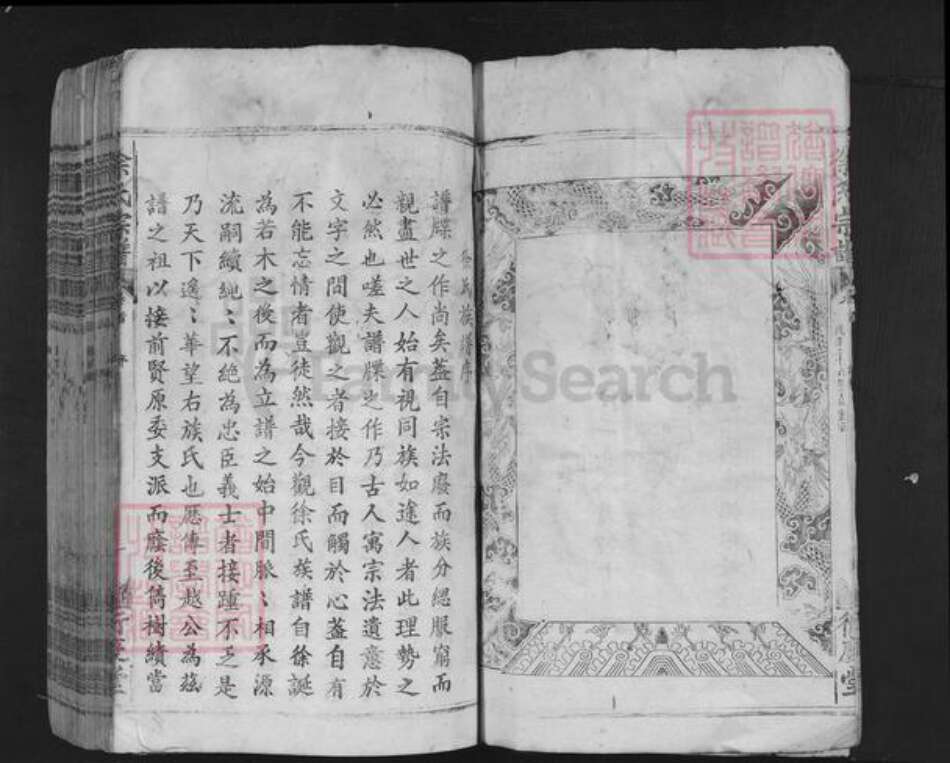 徐氏族譜序
譜牒之作尚矣蓋自宗法廢而族分緦服窮而
觀盡世之人始有視同族如途人者此理勢之
必然也嗟夫譜牒之作乃古人寓宗法遺意於
文字之間使觀之者接於目而觸於心蓋自有
不能忘情者豈徒然哉今觀徐氏族譜自徐誕
為若木之後而為立譜之始中間脈〻相承源
流嗣續繩〻不絕為忠臣義士者接踵不乏是
乃天下遙〻華望右族氏也歷傳至越公為茲
譜之祖以接前賢原委支派而廢後倚樹績當
徐氏宗譜
堂
FamilySearch